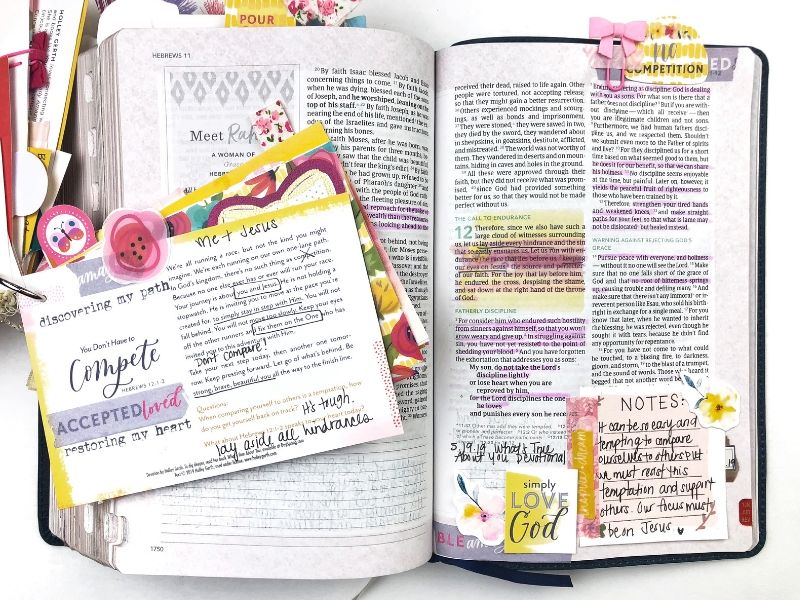 HOLLEY GERTH
POUR
HEBREWS 11
Meet Rah
A WOMAN OF
HEBREWS
²⁰By faith Isaac blessed Jacob and Esau
concerning things to come. ²¹By faith Jacob,
when he was dying, blessed each of the sons
of Joseph, and he worshiped, leaning on the
top of his staff. ²²By faith Joseph, as he was
nearing the end of his life, mentioned the
odus of the Israelites and gave instructions
concerning his bones.
faith Moses, after he was born, was
by his parents for three months, be-
saw that the child was beautiful
didn't fear the king's edict.
he had grown up, refused to be
of Pharaoh's daughter
the fleeting pleasure of sin.
reproach for the sake of
wealth than the treasures
looking ahead to
me + Jesus
We're all running a race, but not the kind you might
imagine. We're each running on our own one-lane path.
In God's kingdom, there's no such thing as competition.
Because no one else ever has or ever will run your race.
Your journey is about you and Jesus. He is not holding a
stopwatch. He is inviting you to move at the pace you're
created for, to simply stay in step with Him. You will not
fall behind. You will not move too slowly. Keep your eyes
off the other runners and fix them on the One who has
invited you to this adventure with Him.
Don't compare!
Take your next step today, then another one tomor-
row. Keep pressing forward. Let go of what's behind. Be
strong, brave, beautiful you all the way to the finish line.
Questions:
When comparing yourself to others is a temptation, how
do you get yourself back on track? It's tough.
What about Hebrews 12:1-2 speaks to your heart today?
lay aside all hindrances
discovering my path
You Don't Have to
Compete
HEBREWS 12:1-3
ACCEPTED loved
restoring my heart
1750
COMPETITION
received their dead, raised to life again. Other
people were tortured, not accepting release,
so that they might gain a better resurrection.
³⁶Others experienced mockings and scourg-
ings, as well as bonds and imprisonment.
³⁷They were stoned, they were sawed in two,
they died by the sword, they wandered about
in sheepskins, in goatskins, destitute, afflicted,
and mistreated. ³⁸The world was not worthy of
them. They wandered in deserts and on moun-
tains, hiding in caves and holes in the ground.
³⁹All these were approved through their
faith, but they did not receive what was prom-
ised, ⁴⁰since God had provided something
better for us, so that they would not be made
perfect without us.
THE CALL TO ENDURANCE
12 Therefore, since we also have such a
large cloud of witnesses surrounding
us, let us lay aside every hindrance and the sin
that so easily ensnares us. Let us run with en-
durance the race that lies before us, ²keeping
our eyes on Jesus, the source and perfecter
of our faith. For the joy that lay before him,
he endured the cross, despising the shame,
and sat down at the right hand of the throne
of God.
FATHERLY DISCIPLINE
³For consider him who endured such hostility
from sinners against himself, so that you won't
grow weary and give up. ⁴In struggling against
sin, you have not yet resisted to the point of
shedding your blood. ⁵And you have forgotten
the exhortation that addresses you as sons:
My son, do not take the Lord's
discipline lightly
or lose heart when you are
reproved by him,
⁶for the Lord disciplines the one
he loves
and punishes every son he receives.
5.19.19 What's True
About You Devotional
simply
LOVE
God
⁷Endure suffering as discipline: God is dealing
with you as sons. For what son is there that a
father does not discipline? ⁸But if you are with-
out discipline—which all receive—then
you are illegitimate children and not sons.
⁹Furthermore, we had human fathers disci-
pline us, and we respected them. Shouldn't
we submit even more to the Father of spirits
and live? ¹⁰For they disciplined us for a short
time based on what seemed good to them, but
he does it for our benefit, so that we can share
his holiness. ¹¹No discipline seems enjoyable
at the time, but painful. Later on, however, it
yields the peaceful fruit of righteousness to
those who have been trained by it.
¹²Therefore, strengthen your tired hands
and weakened knees, ¹³and make straight
paths for your feet, so that what is lame may
not be dislocated but healed instead.
WARNING AGAINST REJECTING GOD'S
GRACE
¹⁴Pursue peace with everyone, and holiness
—without it no one will see the Lord. ¹⁵Make
sure that no one falls short of the grace of
God and that no root of bitterness springs
up, causing trouble and defiling many. ¹⁶And
make sure that there isn't any immoral or ir-
reverent person like Esau, who sold his birth-
right in exchange for a single meal. ¹⁷For you
know that later, when he wanted to inherit
the blessing, he was rejected, even though he
sought it with tears, because he didn't find
any opportunity for repentance.
¹⁸For you have not come to what could
be touched, to a blazing fire, to darkness,
gloom, and storm, ¹⁹to the blast of a trumpet,
and the sound of words. Those who heard it
begged that not another word be
NOTES:
It can be so easy and
tempting to compare
ourselves to others but
we must resist this
temptation and support
others. Our focus must
be on Jesus